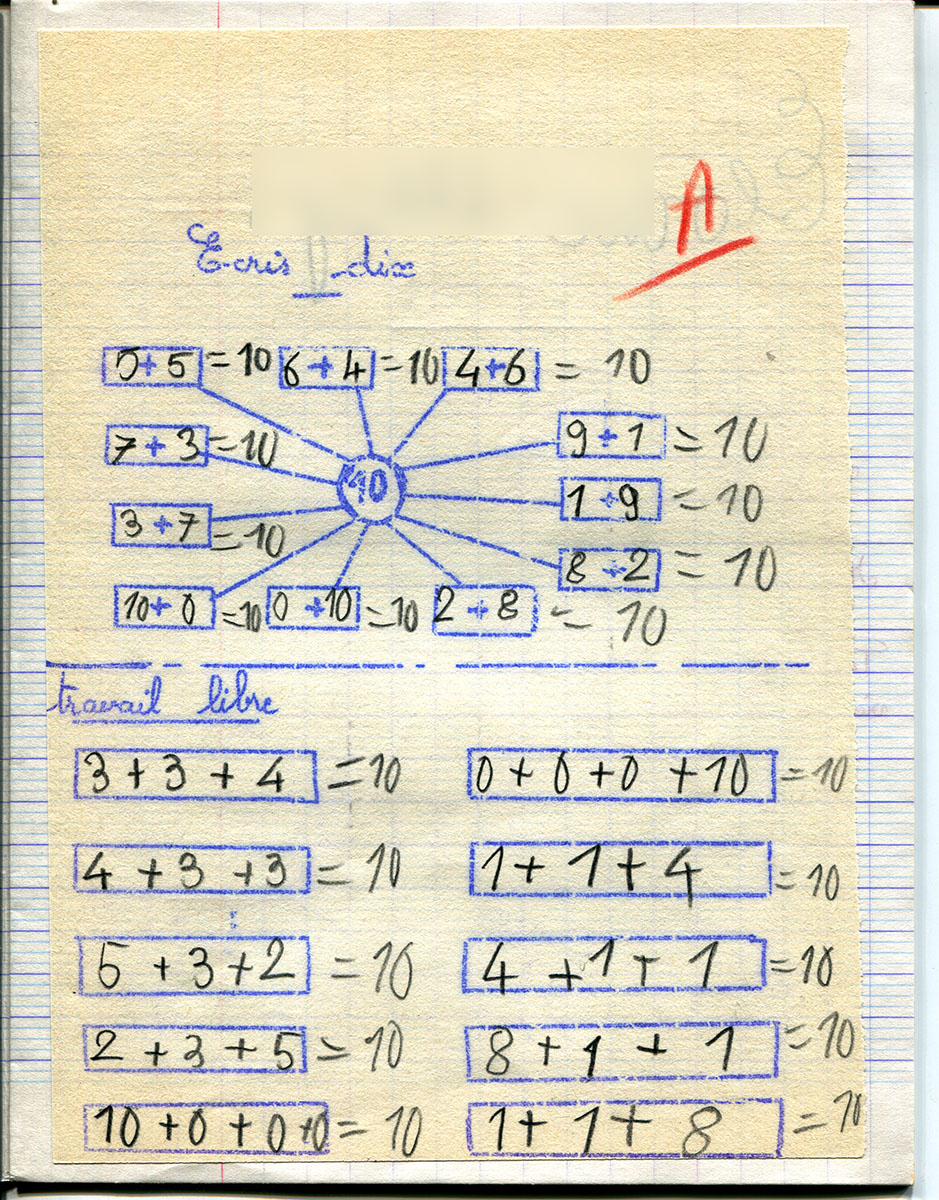 A
Ecris dix
5+5 = 10 6 + 4 = 10 4+6 = 10
7 + 3 = 10 9 + 1 = 10
10
3 + 7 = 10 1 + 9 = 10
8 + 2 = 10
10 + 0 = 10 0 + 10 = 10 2 + 8 = 10
travail libre
3 + 3 + 4 = 10 0 + 0 + 0 + 10 = 10
4 + 3 + 3 = 10 1 + 1 + 4 = 10
5 + 3 + 2 = 10 4 + 1 + 1 = 10
2 + 3 + 5 = 10 8 + 1 + 1 = 10
10 + 0 + 0 + 0 = 10 1 + 1 + 8 = 10